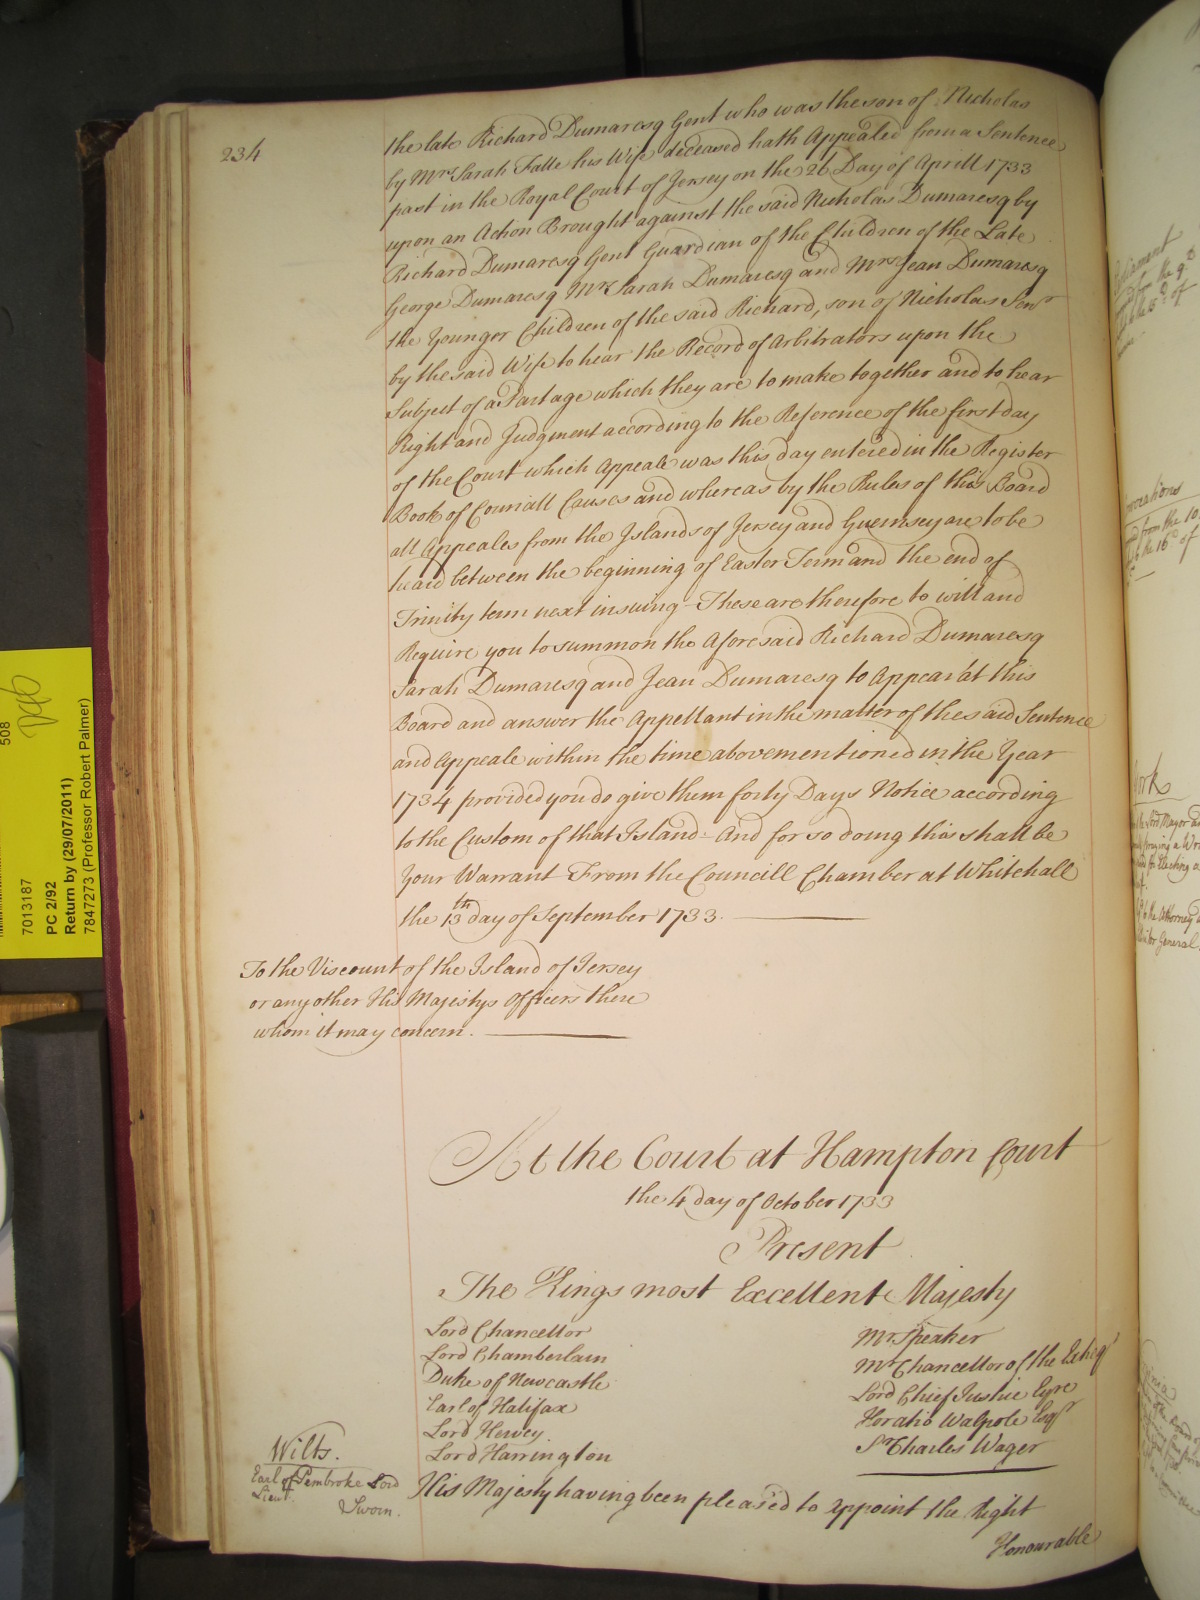 234
the late Richard Dumaresq Gent who was the son of Nicholas
by Mrs Sarah Falle his Wife deceased hath Appealed from a Sentence
past in the Royal Court of Jersey on the 26 Day of Aprill 1733
upon an Action Brought against the said Nicholas Dumaresq by
Richard Dumaresq Gent Guardian of the Children of the Late
George Dumaresq Mrs Sarah Dumaresq and Mrs Jean Dumaresq
the Younger Children of the said Richard, son of Nicholas Senr
by the said Wife to hear the Record of Arbitrators upon the
Subject of a Partage which they are to make together and to hear
Right and Judgment according to the Reference of the first day
of the Court which Appeale was this day entered in the Register
Book of Councill Causes and whereas by the Rules of this Board
all Appeales from the Islands of Jersey and Guernsey are to be
heard between the beginning of Easter Term and the end of
Trinity term next insuing - These are therefore to will and
Require you to summon the Aforesaid Richard Dumaresq
Sarah Dumaresq and Jean Dumaresq to Appear at this
Board and answer the Appellant in the matter of the said Sentence
and Appeale within the time abovementioned in the Year
1734 provided you do give them forty Days Notice according
to the Custom of that Island. And for so doing this shall be
Your Warrant From the Councill Chamber at Whitehall
the 13th day of September 1733.
To the Viscount of the Island of Jersey
or any other His Majestys Officers there
whom it may concern.
At the Court at Hampton Court
the 4 day of October 1733
Present
The Kings most Excellent Majesty
Lord Chancellor
Lord Chamberlain
Duke of Newcastle
Earl of Halifax
Lord Hervey
Lord Harrington
Mr Speaker
Mr Chancellor of the Excheqr
Lord Chief Justice Eyre
Horatio Walpole Esqr
Sr Charles Wager
Wilts.
Earl of Pembroke Lord
Lieut.
Sworn.
His Majesty having been pleased to appoint the Right
Honourable
508
7013187
PC 2/92
Return by (29/07/2011)
7847273 (Professor Robert Palmer)